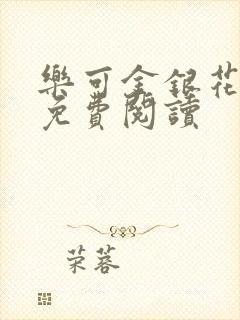 樂可金銀花
免費閱讀
荣蓉